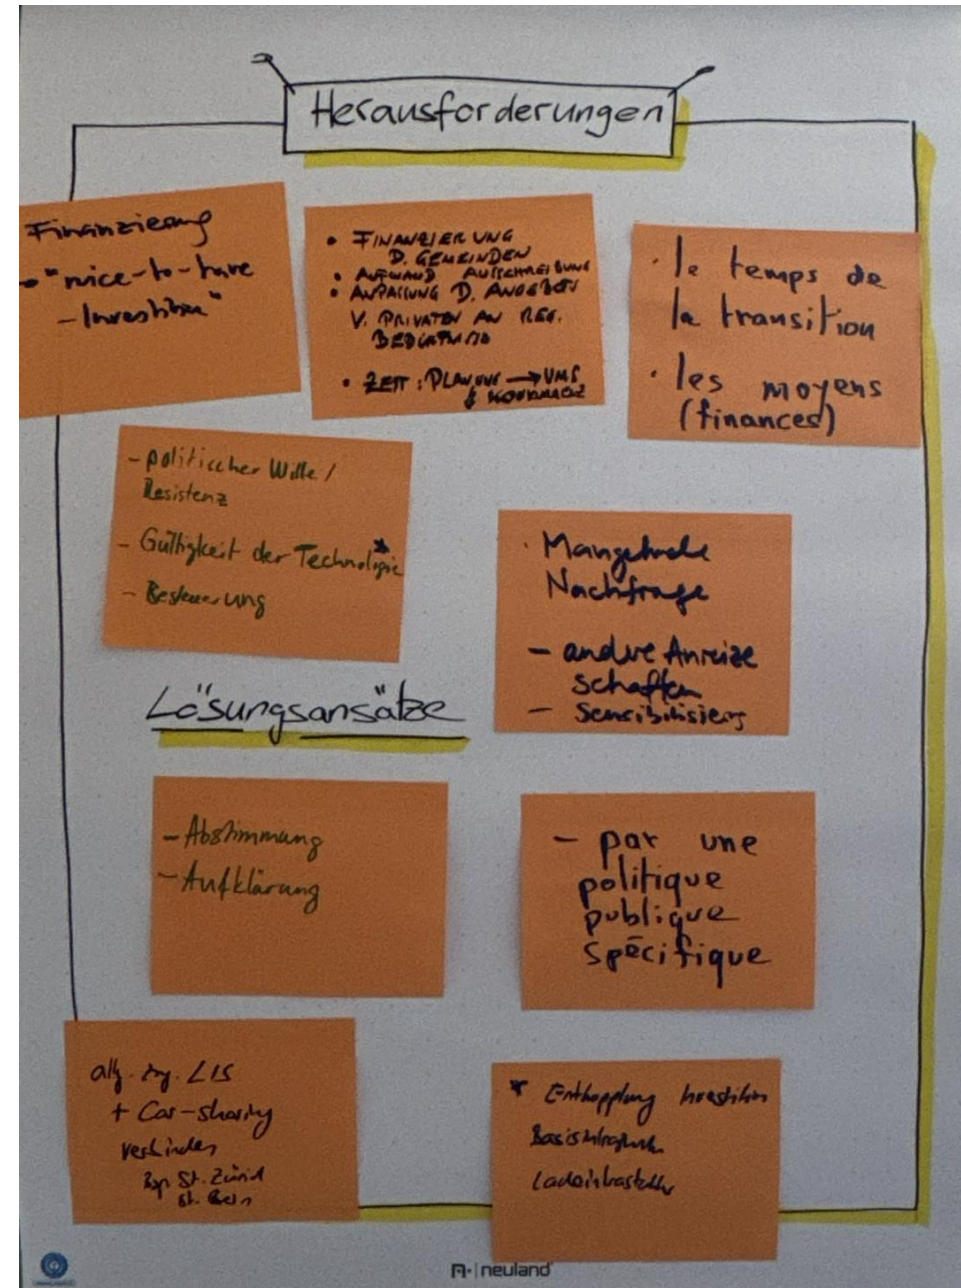 Herausforderungen
Finanzierung
- "nice-to-have
- Investition"
• FINANZIERUNG
D. GEMEINDEN
• AUFWAND AUSSCHREIBUNG
• ANPASSUNG D. ANGEBOTS
V. PRIVATEN AN REG.
BEDÜRFNIS
• ZEIT: PLANUNG → UMS
· le temps de
la transition
· les moyens
(finances)
- politischer Wille /
Resistenz
- Gültigkeit der Technologie *
- Besteuerung
· Mangelnde
Nachfrage
- andere Anreize
schaffen
- sensibilisieren
Lösungsansätze
- Abstimmung
- Aufklärung
- par une
politique
publique
spécifique
LIS
+ Car-sharing
verbinden
Bsp. St. Zürich
St. Bern
* Entkopplung Investition
Basisinfrastruktur
Ladeinfrastruktur
neuland